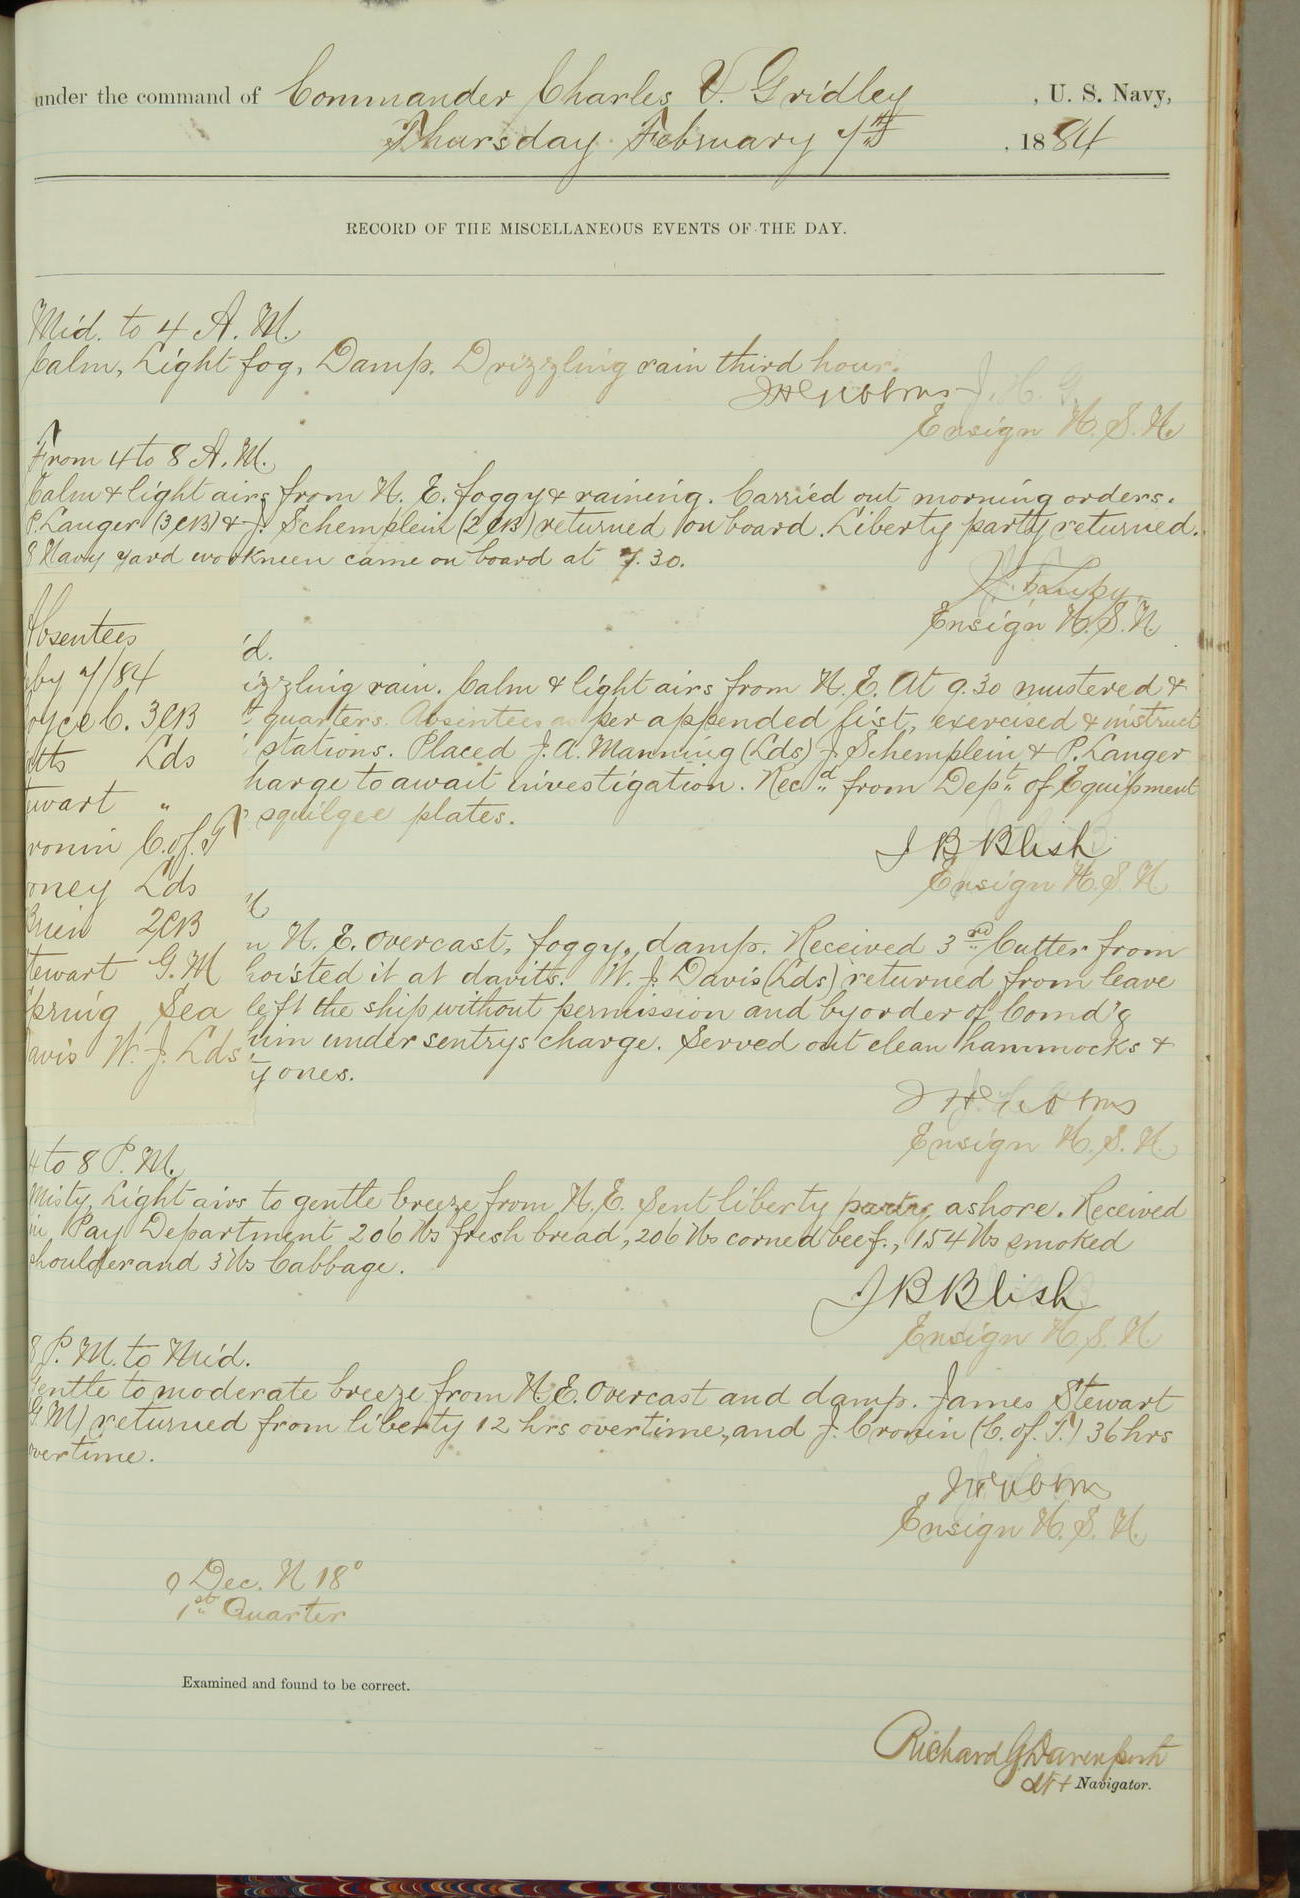 under the command of Commander Charles V. Gridley , U. S. Navy,
Thursday February 7th , 1884
RECORD OF THE MISCELLANEOUS EVENTS OF THE DAY.
Mid. to 4 A. M.
Calm, Light fog, Damp. Drizzling rain third hour.
Ensign U. S. N.
From 4 to 8 A. M.
Calm & light airs from N. E. foggy & raining. Carried out morning orders.
P. Langer (3CB) & J. Schemplein (2CB) returned on board. Liberty party returned.
8 Navy yard workmen came on board at 7.30.
Ensign U. S. N.
Absentees
by 7/84
oyce C. 3CB
tts Lds
wart "
ronin C. of T
oney Lds
Brien 2CB
tewart G. M
pring Sea
avis W. J. Lds
d.
izzling rain. Calm & light airs from N. E. At 9.30 mustered &
t quarters. Absentees as per appended list, exercised & instruct
stations. Placed J. A. Manning (Lds) J. Schemplein & P. Langer
harge to await investigation. Recd from Dept of Equipment
squilgee plates.
J B Blish
Ensign U. S. N
M
n N. E. overcast, foggy, damp. Received 3rd Cutter from
hoisted it at davits. W. J. Davis (Lds) returned from leave
left the ship without permission and by order of Comd'g
him under sentrys charge. Served out clean hammocks &
y ones.
Ensign U. S. N.
4 to 8 P. M.
Misty, Light airs to gentle breeze from N. E. Sent liberty party ashore. Received
in Pay Department 206 lbs fresh bread, 206 lbs corned beef, 154 lbs smoked
shoulder and 3 lbs Cabbage.
J B Blish
Ensign U. S. N.
8 P. M. to Mid.
Gentle to moderate breeze from N. E. Overcast and damp. James Stewart
(G. M) returned from liberty 12 hrs overtime, and J. Cronin (C. of. T.) 36 hrs
overtime.
Ensign U. S. N.
Dec. N 18°
1st Quarter
Examined and found to be correct.
Richard G. Davenport
Navigator.